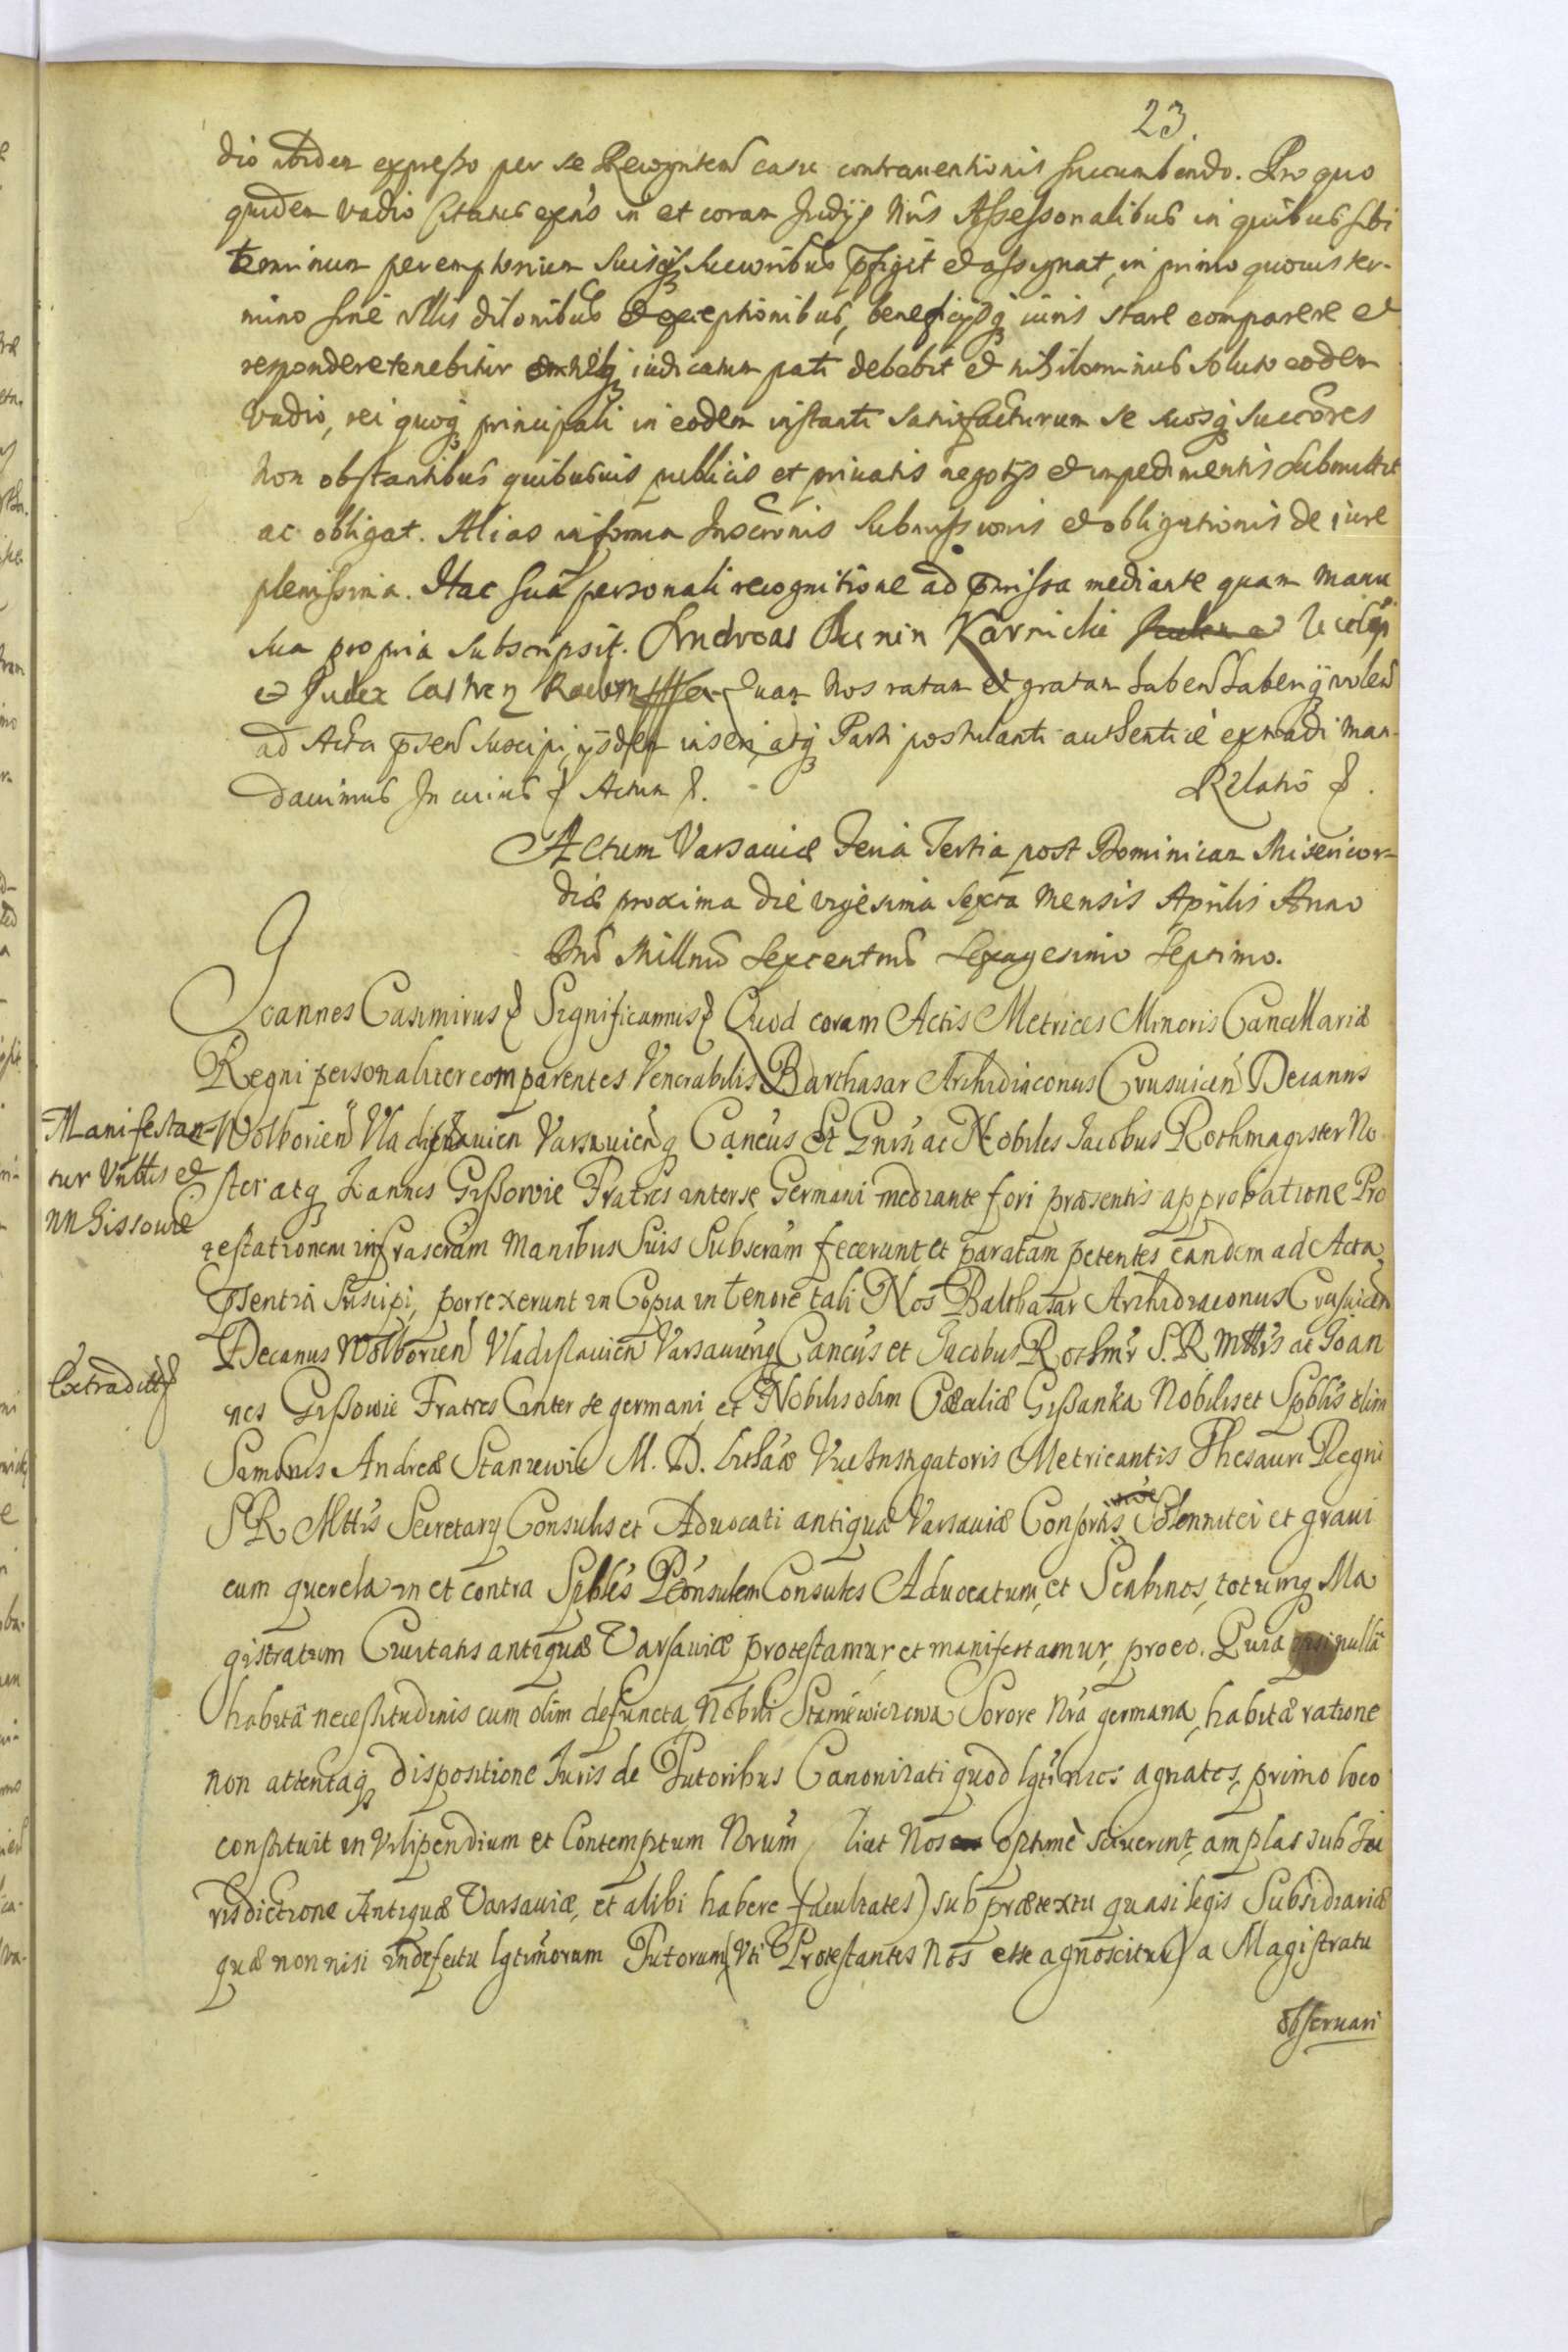 23.
dio ibidem expresso per se Recogntem casu contrauentionis succumbendo. Pro quo
quidem vadio citatus exns in et coram Judijs Nris Assessorialibus in quibus sibi
terminum peremptorium suisq succoribus pfigit et assignat, in primo quouis ter-
mino sine vllis dilonibus et exceptionibus, beneficijsq iuris stare comparere et
respondere tenebitur iudicatum pati debebit et nihilominus soluto eodem
vadio, rei quoq principali in eodem instanti satisfacturum se suosq succores
Non obstantibus quibusuis publicis et priuatis negotijs et impedimentis submittit
ac obligat. Alias in forma Inscronis submissionis et obligationis de iure
plenissima. Hac sua personali recognitione ad pmissa mediante quam manu
sua propria subscripsit. Andreas Bunin Karnicki
et Judex Castren Quam Nos ratam et gratam haben haberiq volen
ad Acta psen suscipi, ijsdem inseri, atq Parti postulanti authentice extradi man-
dauimus In cuius Actum
Relatio
Actum Varsauiæ Feria Tertia post Dominicam Misericor-
diæ proxima die vigesima sexta Mensis Aprilis Anno
Dni Millmo Sexcentmo Sexagesimo Septimo.
Joannes Casimirus Significamus Quod coram Actis Metrices Minoris Cancellariæ
Regni personaliter comparentes Venerabilis Barthasar Archidiaconus Crusuicen Decanus
Manifestan-
tur Vnbtis et
NN Gissowie
Wolborien Vladislauien Varsauienq Cancus Et Gnrsi ac Nobiles Jacobus Rothmagister No
ster atq Joannes Gissowie Fratres inter se Germani mediante fori præsentis approbatione Pro
testationem infrascram Manibus Suis Subscram fecerunt et paratam petentes eandem ad Acta
psentia Suscipi, porrexerunt in Copia in tenore tali Nos Balthasar Archidiaconus Crusuicen
Extradit
Decanus Wolborien Vladislauien Varsauienq Cancus et Jacobus Rothmr S. R. Mttis ac Joan
nes Gissowie Fratres inter se germani, et Nobilis olim Cæciliæ Gissanka Nobilis et Spblis olim
Simonis Andreæ Staniewic M. D. Lithaæ Vice Instigatoris Metricantis Thesauri Regni
S R Mttis Secretarij Consulis et Aduocati antiquæ Varsauiæ Consortis Solenniter et graui
cum querela in et contra Spbles Pconsulem Consules Aduocatum, et Scabinos, totumq Ma
gistratum Ciuitatis antiquæ Varsauiæ protestamur, et manifestamur, pro eo. Quia ipsi nullâ
habitâ necessitudinis cum olim defuncta Nobili Staniewiczowa Sorore Nra germana, habitæ ratione
non attentaq dispositione Juris de Tutoribus Canonizati quod lgtimos agnatos, primo loco
constituit in Vilipendium et Contemptum Nrum, licet Nos optimè sciuerint, amplas sub Ju
risdictione Antiquæ Varsauiæ, et alibi habere facultates) sub prætextu quasi legis Subsidiariæ
quæ non nisi in defectu lgtimorum Tutorum (Vti Protestantes Nos esse agnoscitur) a Magistratu
obseruari